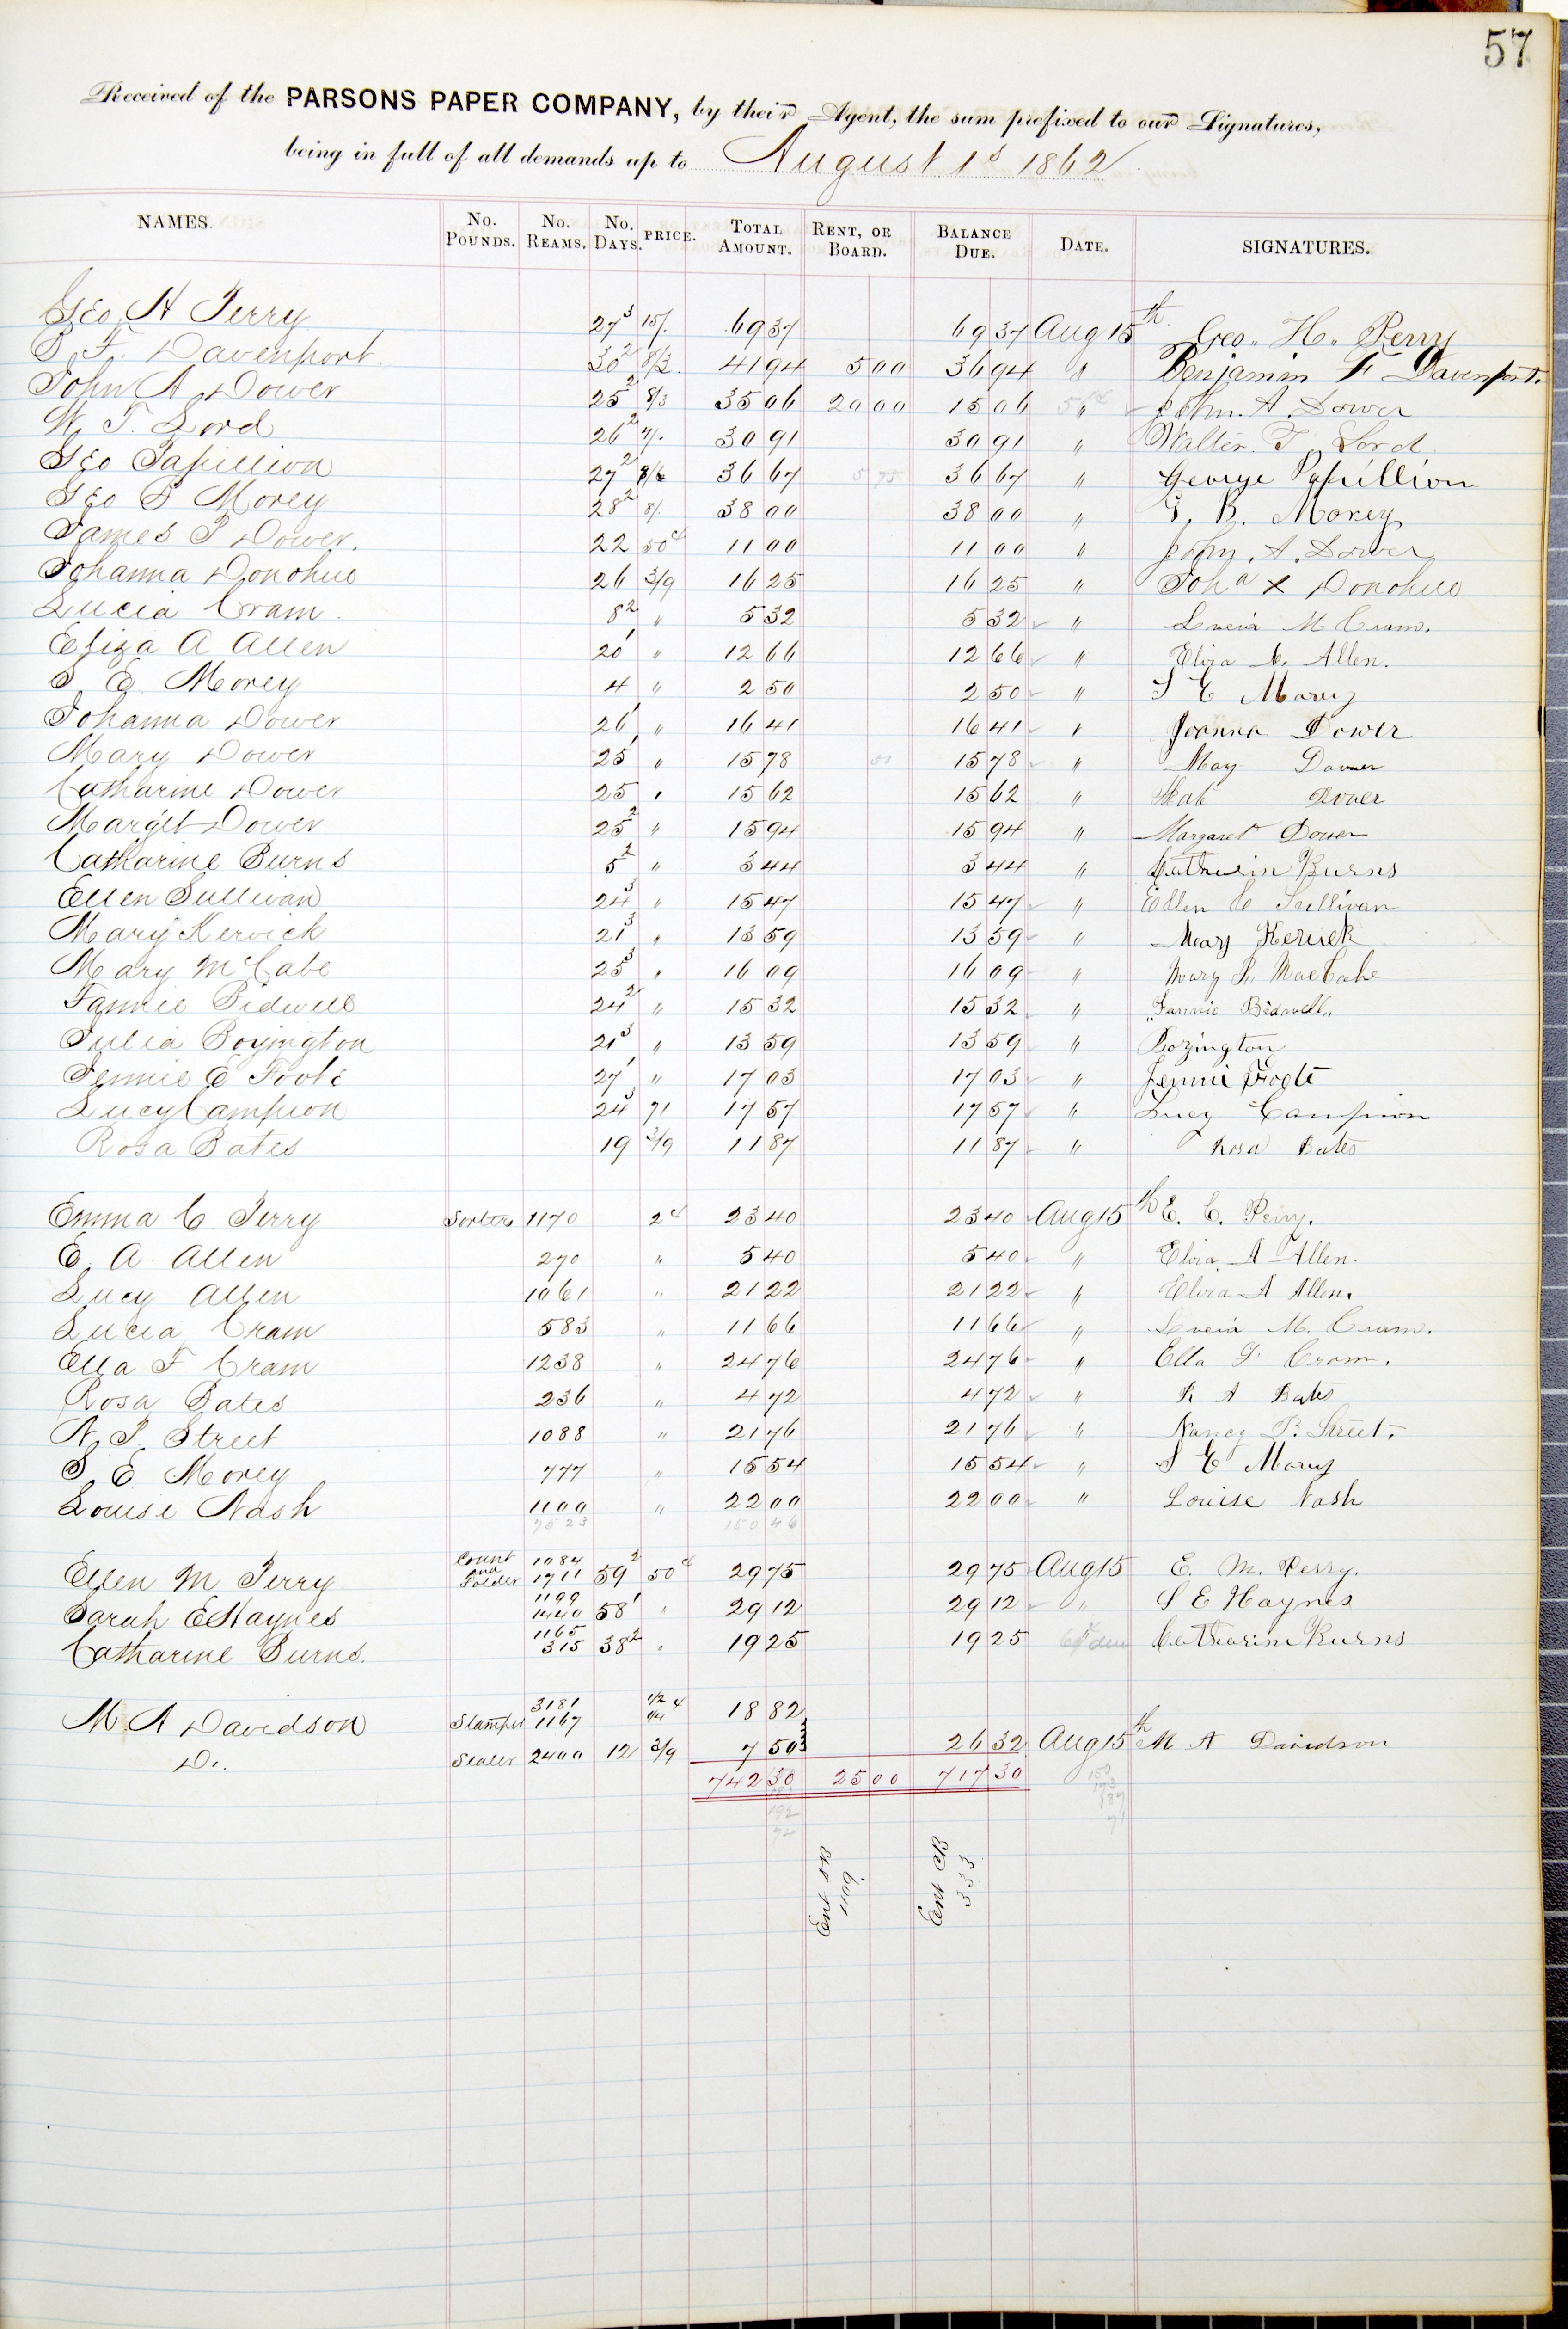 57
Received of the PARSONS PAPER COMPANY, by their Agent, the sum prefixed to our Signatures,
being in full of all demands up to August 1st 1862
NAMES. No. POUNDS. No. REAMS. No. DAYS. PRICE. TOTAL AMOUNT. RENT, OR BOARD. BALANCE DUE. DATE. SIGNATURES.
Geo H Perry 27 3 15/. 69 37 69 37 Aug 15th Geo. H. Perry
B. F. Davenport. 30 2 8/3. 41 94 5 00 36 94 " Benjamin F Davenport.
John A Dower 25 2 8/3 35 06 20 00 15 06 " John. A. Dower
W. T. Lord 26 2 7/. 30 91 30 91 " Walter T. Lord
Geo Papillion 27 2 8/ 36 67 36 67 " George Papillion
Geo B Morey 28 2 8/. 38 00 38 00 " G. B. Morey
James P Dower. 22 50c 11 00 11 00 " John. A. Dower
Johanna Donohue 26 3/9 16 25 16 25 " Joha X Donohue
Lucia Cram 8 2 " 5 32 5 32 " Lucia M Cram.
Eliza A Allen 20 1 " 12 66 12 66 " Elvia A. Allen.
S. E. Morey 4 " 2 50 2 50 " S E Morey
Johanna Dower 26 1 " 16 41 16 41 " Joanna Dower
Mary Dower 25 1 " 15 78 15 78 " May Dower
Catharine Dower 25 " 15 62 15 62 " Kat Dower
Marg'et Dower 25 2 " 15 94 15 94 " Margaret Dower
Catharine Burns 5 2 " 3 44 3 44 " Catherin Burns
Ellen Sullivan 24 3 " 15 47 15 47 " Ellen C Sullivan
Mary Kervick 21 3 " 13 59 13 59 " Mary Kerwick
Mary McCabe 25 3 " 16 09 16 09 " Mary MacCabe
Fannie Bidwell 24 2 " 15 32 15 32 " "Fannie Bidwell"
Julia Boyington 21 3 " 13 59 13 59 " Bozington
Jennie E Foote 27 1 " 17 03 17 03 " Jennie Foote
Lucy Campion 24 3 71 17 57 17 57 " Lucy Campion
Rosa Bates 19 3/9 11 87 11 87 " Rosa Bates
Emma C. Perry Sorters 1170 2c 23 40 23 40 Aug 15th E. C. Perry.
E. A. Allen 270 " 5 40 5 40 " Elvia A Allen.
Lucy Allen 1061 " 21 22 21 22 " Elvia A Allen.
Lucia Cram 583 " 11 66 11 66 " Lucia M. Cram.
Ella F Cram 1238 " 24 76 24 76 " Ella F Cram.
Rosa Bates 236 " 4 72 4 72 " R A Bates
N. P. Street 1088 " 21 76 21 76 " Nancy P. Street.
S. E Morey 777 " 15 54 15 54 " S E Morey
Louise Nash 1100 " 22 00 22 00 " Louise Nash
7523 150 46
Ellen M Perry Count and Folder 1084 1711 59 2 50c 29 75 29 75 Aug 15 E. M. Perry.
Sarah E Haynes 1199 1440 58 1 " 29 12 29 12 " S E Haynes
Catharine Burns. 1165 315 38 2 " 19 25 19 25 Catharine Burns
M A Davidson Stamper 3181 1167 1/2c 1/4 18 82
Do. Sealer 2400 12 3/9 7 50 26 32 Aug 15th M A Davidson
742 30 25 00 717 30
Ent DB 409
Ent CB 333